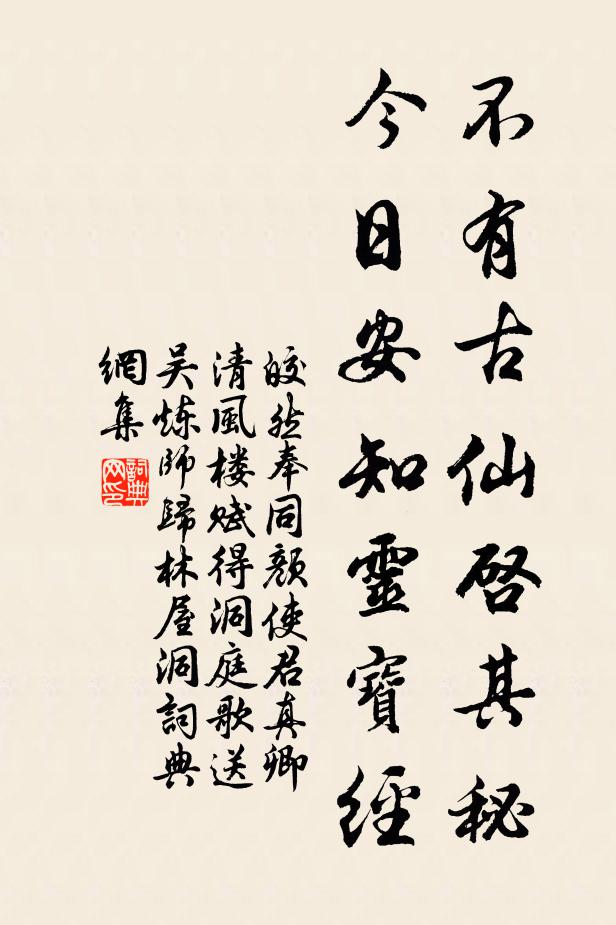 不有古仙啓其秘
今日安知靈寶經
皎然奉同顏使君真卿
清風楼赋得洞庭歌送
吴炼师歸林屋洞詞典
網集
詞典網印